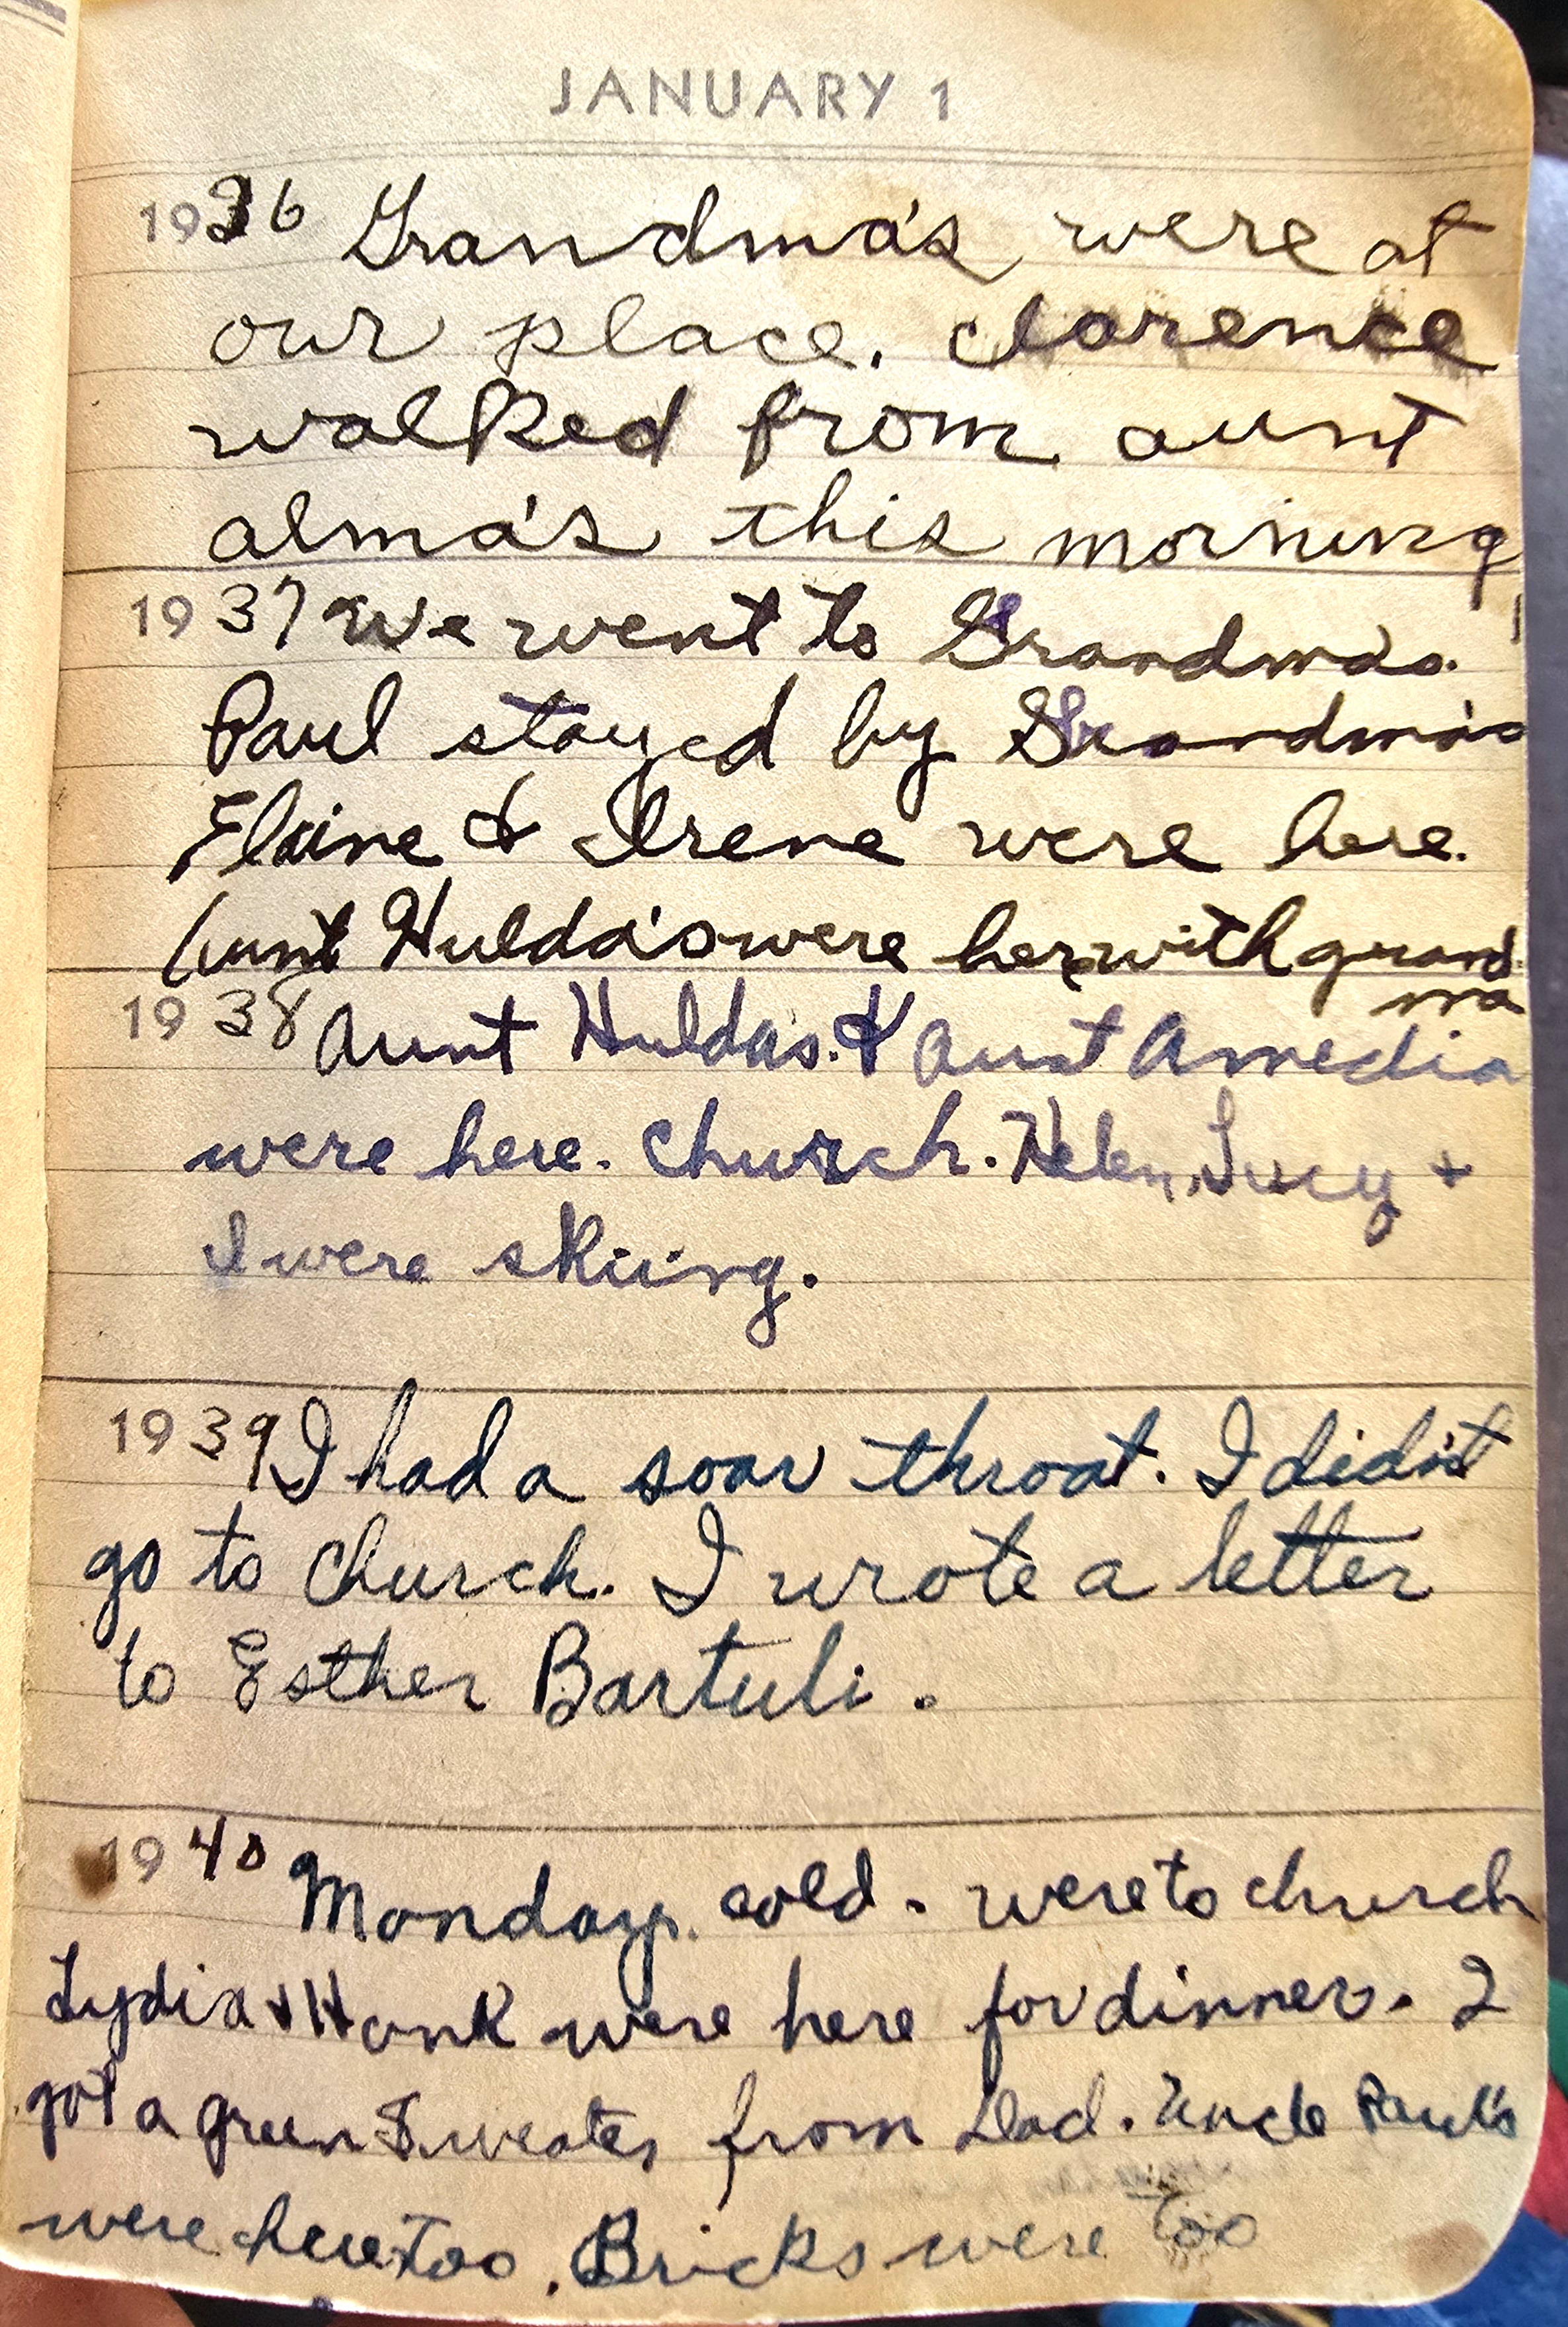 JANUARY 1
1936 Grandma's were at
our place. Clarence
walked from aunt
alma's this morning
1937 We went to Grandma's.
Paul stayed by Grandma's
Elaine & Irene were here.
Aunt Hulda's were here with grand
ma
1938 Aunt Huldas. & Aunt Amedia
were here. Church. Helen, Lucy +
I were skiing.
1939 I had a soar throat. I did'nt
go to Church. I wrote a letter
to Esther Bartuli.
1940 Monday. cold. were to church
Lydia & Hank were here for dinner. I
got a green Sweater from Dad. Uncle Paul's
were here too. Bricks were too